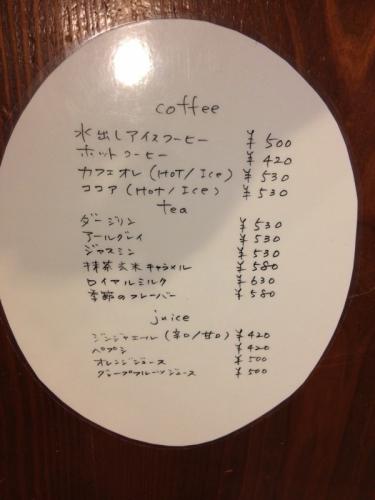 coffee
水出しアイスコーヒー ¥500
ホットコーヒー ¥420
カフェオレ (HOT/Ice) ¥530
ココア (HOT/Ice) ¥530
tea
ダージリン ¥530
アールグレイ ¥530
ジャスミン ¥530
抹茶玄米キャラメル ¥580
ロイヤルミルク ¥630
季節のフレーバー ¥580
juice
ジンジャエール (辛口/甘口) ¥420
ペプシ ¥420
オレンジジュース ¥500
グレープフルーツジュース ¥500